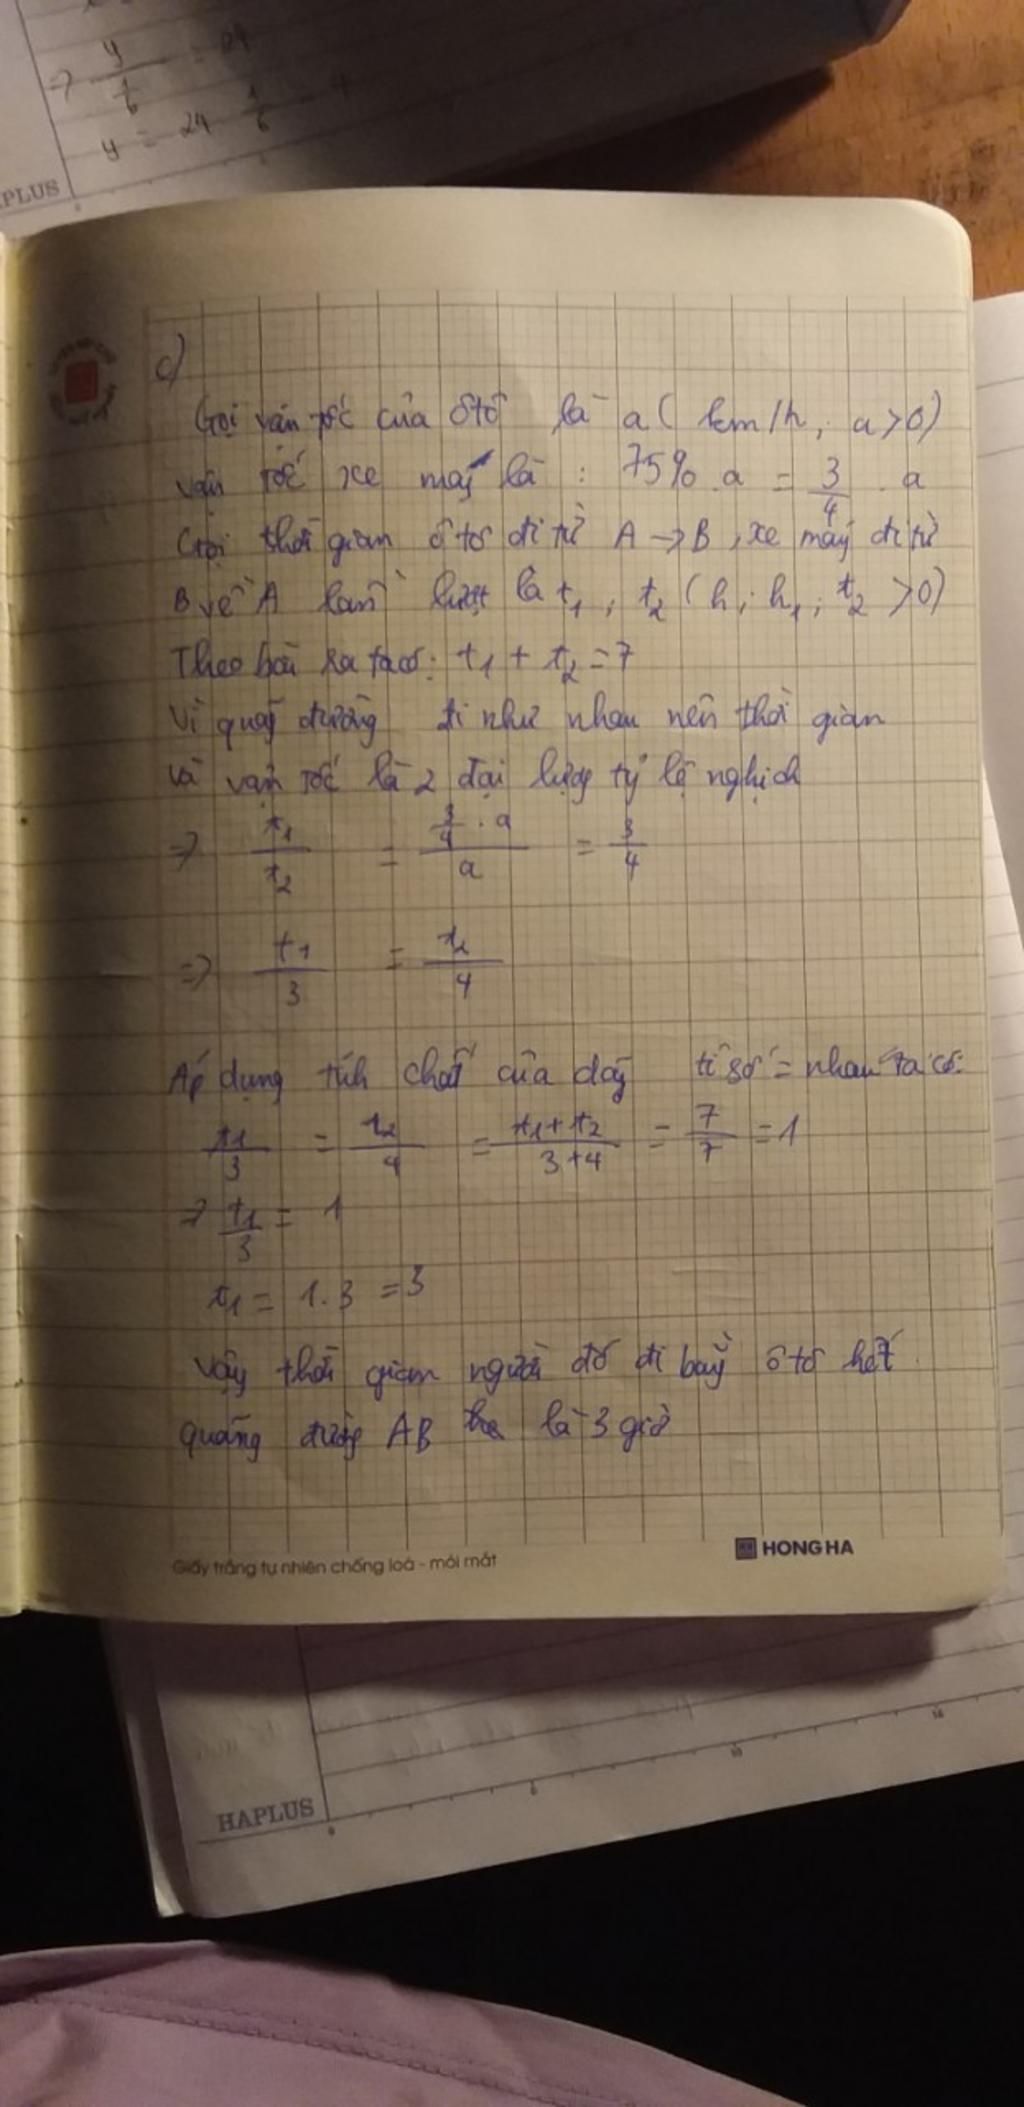 => y/(1/6) = 24
y = 24 . 1/6 = 4
PLUS
c)
Gọi vận tốc của ôtô là a ( km/h, a>0)
vận tốc xe máy là : 75% . a = 3/4 . a
Gọi thời gian ôtô đi từ A -> B, xe máy đi từ
B về A lần lượt là t1, t2 (h; h1; t2 >0)
Theo bài ra ta có: t1 + t2 = 7
Vì quãng đường đi như nhau nên thời gian
và vận tốc là 2 đại lượng tỷ lệ nghịch
=> t1/t2 = (3/4 . a)/a = 3/4
=> t1/3 = t2/4
Áp dụng tính chất của dãy tỉ số = nhau ta có:
t1/3 = t2/4 = (t1+t2)/(3+4) = 7/7 = 1
=> t1/3 = 1
t1 = 1.3 = 3
Vậy thời gian người đó đi bằng ôtô hết
quãng đường AB là 3 giờ
Giấy trắng tự nhiên chống loá - mỏi mắt
HONG HA
HAPLUS